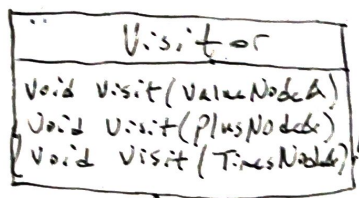 Visitor
void visit(ValueNode&)
void visit(PlusNode&)
void visit(TimesNode&)